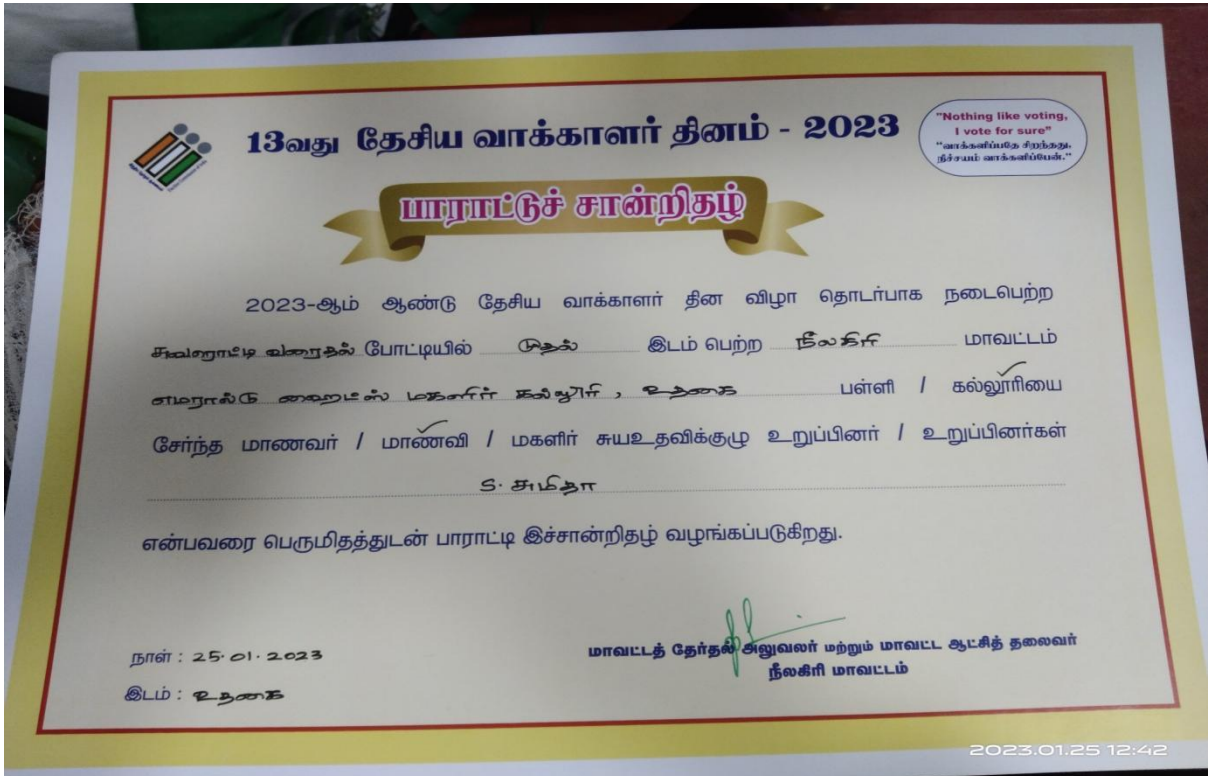 13வது தேசிய வாக்காளர் தினம் - 2023
"Nothing like voting,
I vote for sure"
"வாக்களிப்பதே சிறந்தது,
நிச்சயம் வாக்களிப்பேன்."
பாராட்டுச் சான்றிதழ்
2023-ஆம் ஆண்டு தேசிய வாக்காளர் தின விழா தொடர்பாக நடைபெற்ற
சுவரொட்டி வரைதல் போட்டியில் முதல் இடம் பெற்ற நீலகிரி மாவட்டம்
எமரால்டு ஹைட்ஸ் மகளிர் கல்லூரி, உதகை பள்ளி / கல்லூரியை
சேர்ந்த மாணவர் / மாணவி / மகளிர் சுயஉதவிக்குழு உறுப்பினர் / உறுப்பினர்கள்
S. சுமிதா
என்பவரை பெருமிதத்துடன் பாராட்டி இச்சான்றிதழ் வழங்கப்படுகிறது.
நாள் : 25.01.2023
இடம் : உதகை
மாவட்டத் தேர்தல் அலுவலர் மற்றும் மாவட்ட ஆட்சித் தலைவர்
நீலகிரி மாவட்டம்
2023.01.25 12:42